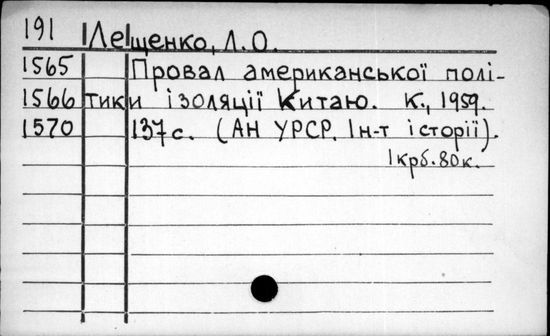 191 Лещенко, Л. О.
1565 Провал американської полі-
1566 тики ізоляції Китаю. К., 1959.
1570 137 с. (АН УРСР. Ін-т історії).
1 крб. 80 к.